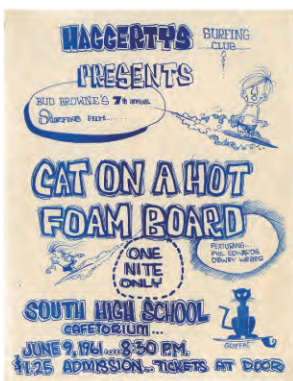 HAGGERTYS SURFING
CLUB
PRESENTS
BUD BROWNE'S 7th annual
SURFING FILM......
CAT ON A HOT
FOAM BOARD
FEATURING...
PHIL EDWARDS
DEWEY WEBER
ONE
NITE
ONLY
SOUTH HIGH SCHOOL
CAFETORIUM...
JUNE 9, 1961....8:30 P.M.
$1.25 ADMISSION... TICKETS AT DOOR